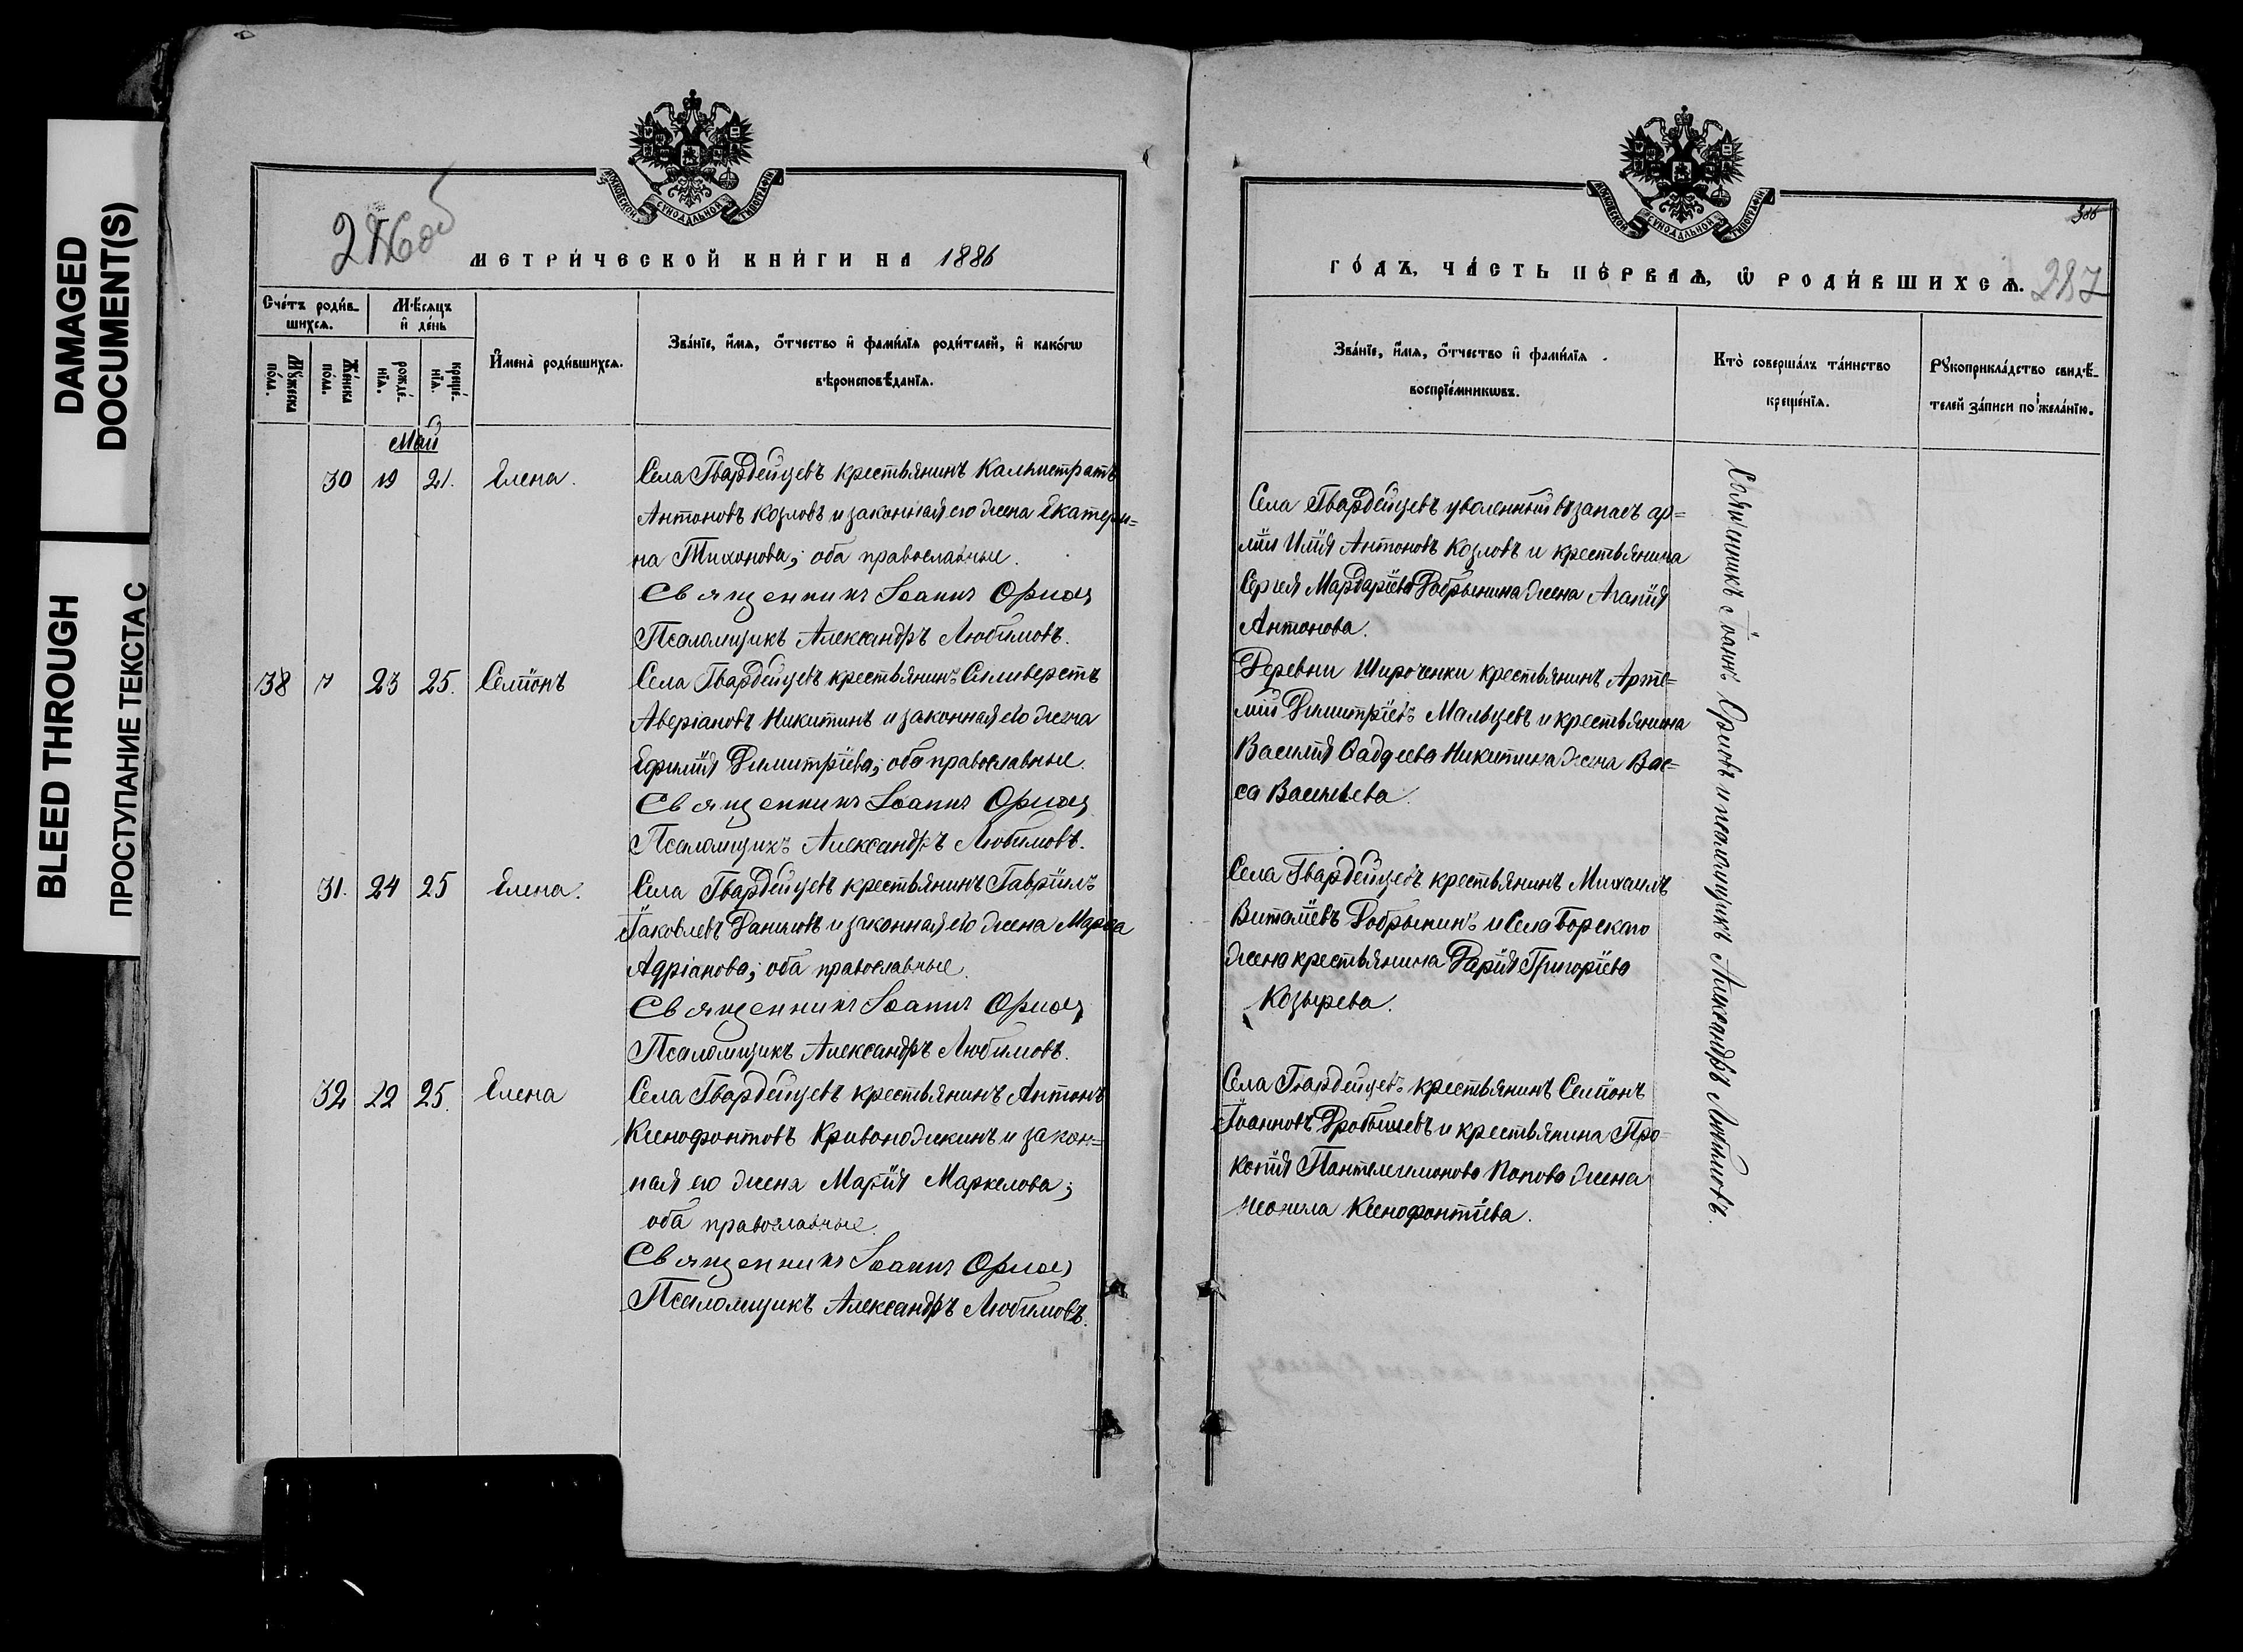 DAMAGED
DOCUMENT(S)
BLEED THROUGH
ПРОСТУПАНИЕ ТЕКСТА С
МОСКОВСКОЙ СѴНОДАЛЬНОЙ ТИПОГРАФІИ
МЕТРИ́ЧЕСКОЙ КНИ́ГИ НА 1886
Сче́тъ роди́в-
шихсѧ.
Мѣ́сѧцъ
и҆ де́нь
Мꙋ́жеска
по́ла.
Же́нска
по́ла.
рожде́-
нїѧ.
креще́-
нїѧ.
И҆мена̀ роди́вшихсѧ.
Зва́нїе, и҆́мѧ, ѻ҆́тчество и҆ фами́лїѧ роди́телей, и҆ како́гѡ
вѣроисповѣ́данїѧ.
Май
30 19 21. Елена.
Села Гвардейцевъ крестьянинъ Калистратъ
Антоновъ Козловъ и законная его жена Екатери=
на Тихонова; оба православные.
Священникъ Іоаннъ Орловъ
Псаломщикъ Александръ Любимовъ.
38 7 23 25. Семіонъ
Села Гвардейцевъ крестьянинъ Силиверстъ
Аверіановъ Никитинъ и законная его жена
Ефимія Димитріева; оба православные.
Священникъ Іоаннъ Орловъ
Псаломщикъ Александръ Любимовъ.
31. 24 25 Елена.
Села Гвардейцевъ крестьянинъ Гавріилъ
Іаковлевъ Даниловъ и законная его жена Марѳа
Адріанова; оба православные.
Священникъ Іоаннъ Орловъ
Псаломщикъ Александръ Любимовъ.
32 22 25. Елена
Села Гвардейцевъ крестьянинъ Антонъ
Ксенофонтовъ Кривоножкинъ и закон=
ная его жена Марія Маркелова;
оба православные.
Священникъ Іоаннъ Орловъ
Псаломщикъ Александръ Любимовъ.
МОСКОВСКОЙ СѴНОДАЛЬНОЙ ТИПОГРАФІИ
ГО́ДЪ, ЧА́СТЬ ПЕ́РВАѦ, Ѡ҆ РОДИ́ВШИХСѦ. 287
Зва́нїе, и҆́мѧ, ѻ҆́тчество и҆ фами́лїѧ
воспрїе́мникѡвъ.
Кто̀ соверша́лъ та́инство
креще́нїѧ.
Рꙋкоприкла́дство свидѣ́-
телей за́писи по жела́нїю.
Села Гвардейцевъ уволенный въ запасъ ар=
міи Илія Антоновъ Козловъ и крестьянина
Сергея Мардаріева Добрынина жена Агапія
Антонова.
Деревни Широченки крестьянинъ Арте=
мій Димитріевъ Мальцевъ и крестьянина
Василія Фаддеева Никитина жена Вас=
са Васильева.
Села Гвардейцевъ крестьянинъ Михаилъ
Виталіевъ Добрынинъ и Села Борскаго
жена крестьянина Дарія Григоріева
Козырева.
Села Гвардейцевъ крестьянинъ Семіонъ
Іоанновъ Дробышевъ и крестьянина Про=
копія Пантелеимонова Попова жена
Неонила Ксенофонтіева.
Священникъ Іоаннъ Орловъ и псаломщикъ Александръ Любимовъ.